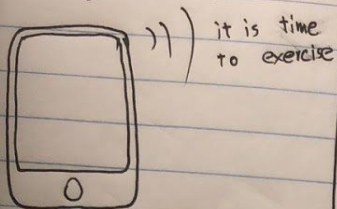 it is time
to exercise